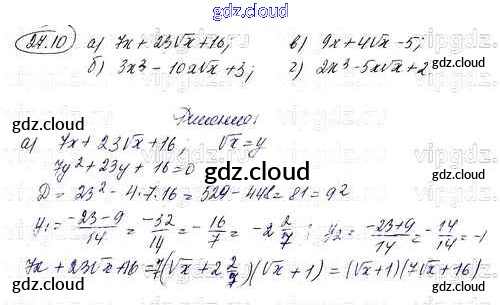 gdz.cloud
24.10 а) 7x + 23√x + 16; в) 9x + 4√x - 5;
б) 3x³ - 10x√x + 3; г) 2x³ - 5x√x + 2
gdz.cloud
Решение:
gdz.cloud
а) 7x + 23√x + 16, √x = y
gdz.cloud
7y² + 23y + 16 = 0
gdz.cloud
D = 23² - 4·7·16 = 529 - 448 = 81 = 9²
y₁ = (-23-9)/14 = -32/14 = -16/7 = -2 2/7; y₂ = (-23+9)/14 = -14/14 = -1
7x + 23√x + 16 = 7(√x + 2 2/7)(√x + 1) = (√x+1)(7√x+16)
gdz.cloud
gdz.cloud